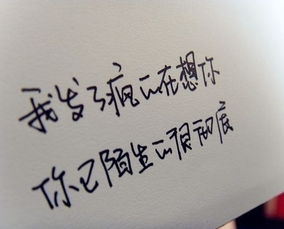 我发了疯一在想你
你已陌生一很彻底